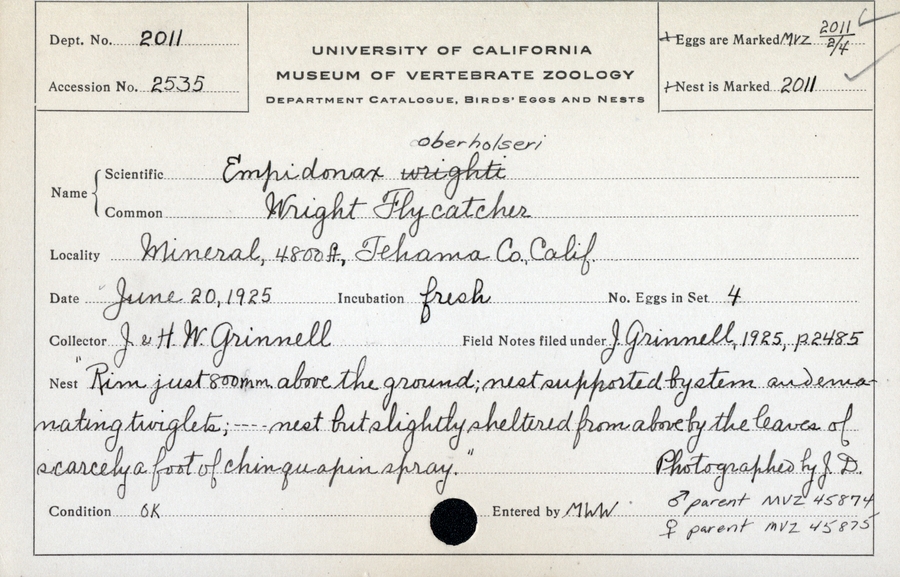 Dept. No. 2011
Accession No. 2535
UNIVERSITY OF CALIFORNIA
MUSEUM OF VERTEBRATE ZOOLOGY
DEPARTMENT CATALOGUE, BIRDS' EGGS AND NESTS
Eggs are Marked MVZ 2011 2/4
Nest is Marked 2011
oberholseri
Name { Scientific Empidonax wrighti
Common Wright Flycatcher
Locality Mineral, 4800 ft., Tehama Co., Calif.
Date June 20, 1925 Incubation fresh No. Eggs in Set 4
Collector J. & H. W. Grinnell Field Notes filed under J. Grinnell, 1925, p. 2485
Nest "Rim just 800 mm. above the ground; nest supported by stem and ema-
nating twiglets; ---- nest but slightly sheltered from above by the leaves of
scarcely a foot of chinquapin spray." Photographed by J. D.
Condition OK Entered by MWW ♂ parent MVZ 45874
♀ parent MVZ 45875